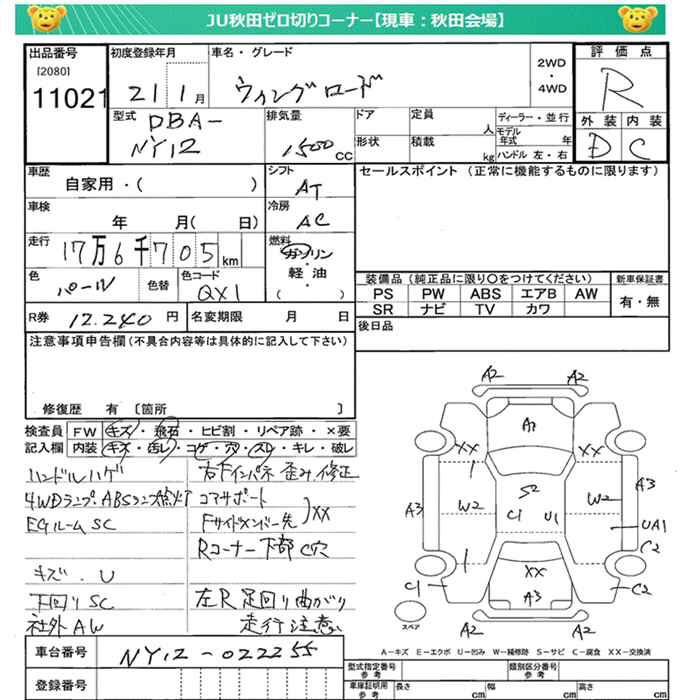 JU秋田ゼロ切りコーナー【現車：秋田会場】
出品番号
[2080]
11021
初度登録年月
21 1月
車名・グレード
ウィングロード
2WD
・
4WD
評価点
R
外装 内装
D C
型式
DBA-
NY12
排気量
1500cc
ドア
形状
定員
人
積載
kg
ディーラー・並行
モデル年式
年
ハンドル 左・右
車歴
自家用・( )
シフト
AT
セールスポイント (正常に機能するものに限ります)
車検
年 月( 日)
冷房
AC
走行
17万6千705km
燃料
ガソリン
・
軽・油
( )
色
パール
色替
色コード
QX1
装備品 (純正品に限り○をつけてください)
新車保証書
PS PW ABS エアB AW
SR ナビ TV カワ
有・無
R券 12.240円
名変期限 月 日
後日品
注意事項申告欄(不具合内容等は具体的に記入して下さい)
修復歴 有 〔箇所 〕
検査員 FW キズ・飛石・ヒビ割・リペア跡・×要
記入欄 内装 キズ・汚レ・コゲ・穴・スレ・キレ・破レ
ハンドルハゲ
4WDランプ.ABSランプ点灯
EGルームSC
キズ.U
下回りSC
社外AW
右Fインパネ歪み修正
コアサポート
Fサイドメンバー先
XX
Rコーナー下部C穴
左R足回り曲がり
走行注意
A2 A2
A1
XX XX
A3 W2 S2 W2 A3
C1 U1
UA1
C2
XX
A3
C1 C2
A2 A2
スペア
A－キズ E－エクボ U－凹み W－補修跡 S－サビ C－腐食 XX－交換済
車台番号 NY12-022255
登録番号
型式指定番号
参考
類別区分番号
参考
車庫証明用
参考
長さ cm
幅 cm
高さ cm